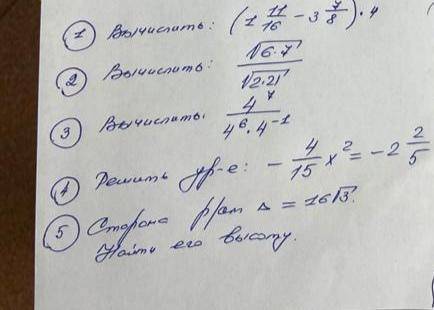 ① Вычислить: (1 11/16 - 3 7/8) · 4
② Вычислить: √6·7 / √2·21
③ Вычислить. 4^7 / 4^6 · 4^-1
④ Решить ур-е: - 4/15 x^2 = -2 2/5
⑤ Сторона р/ст Δ = 16√3.
Найти его высоту.